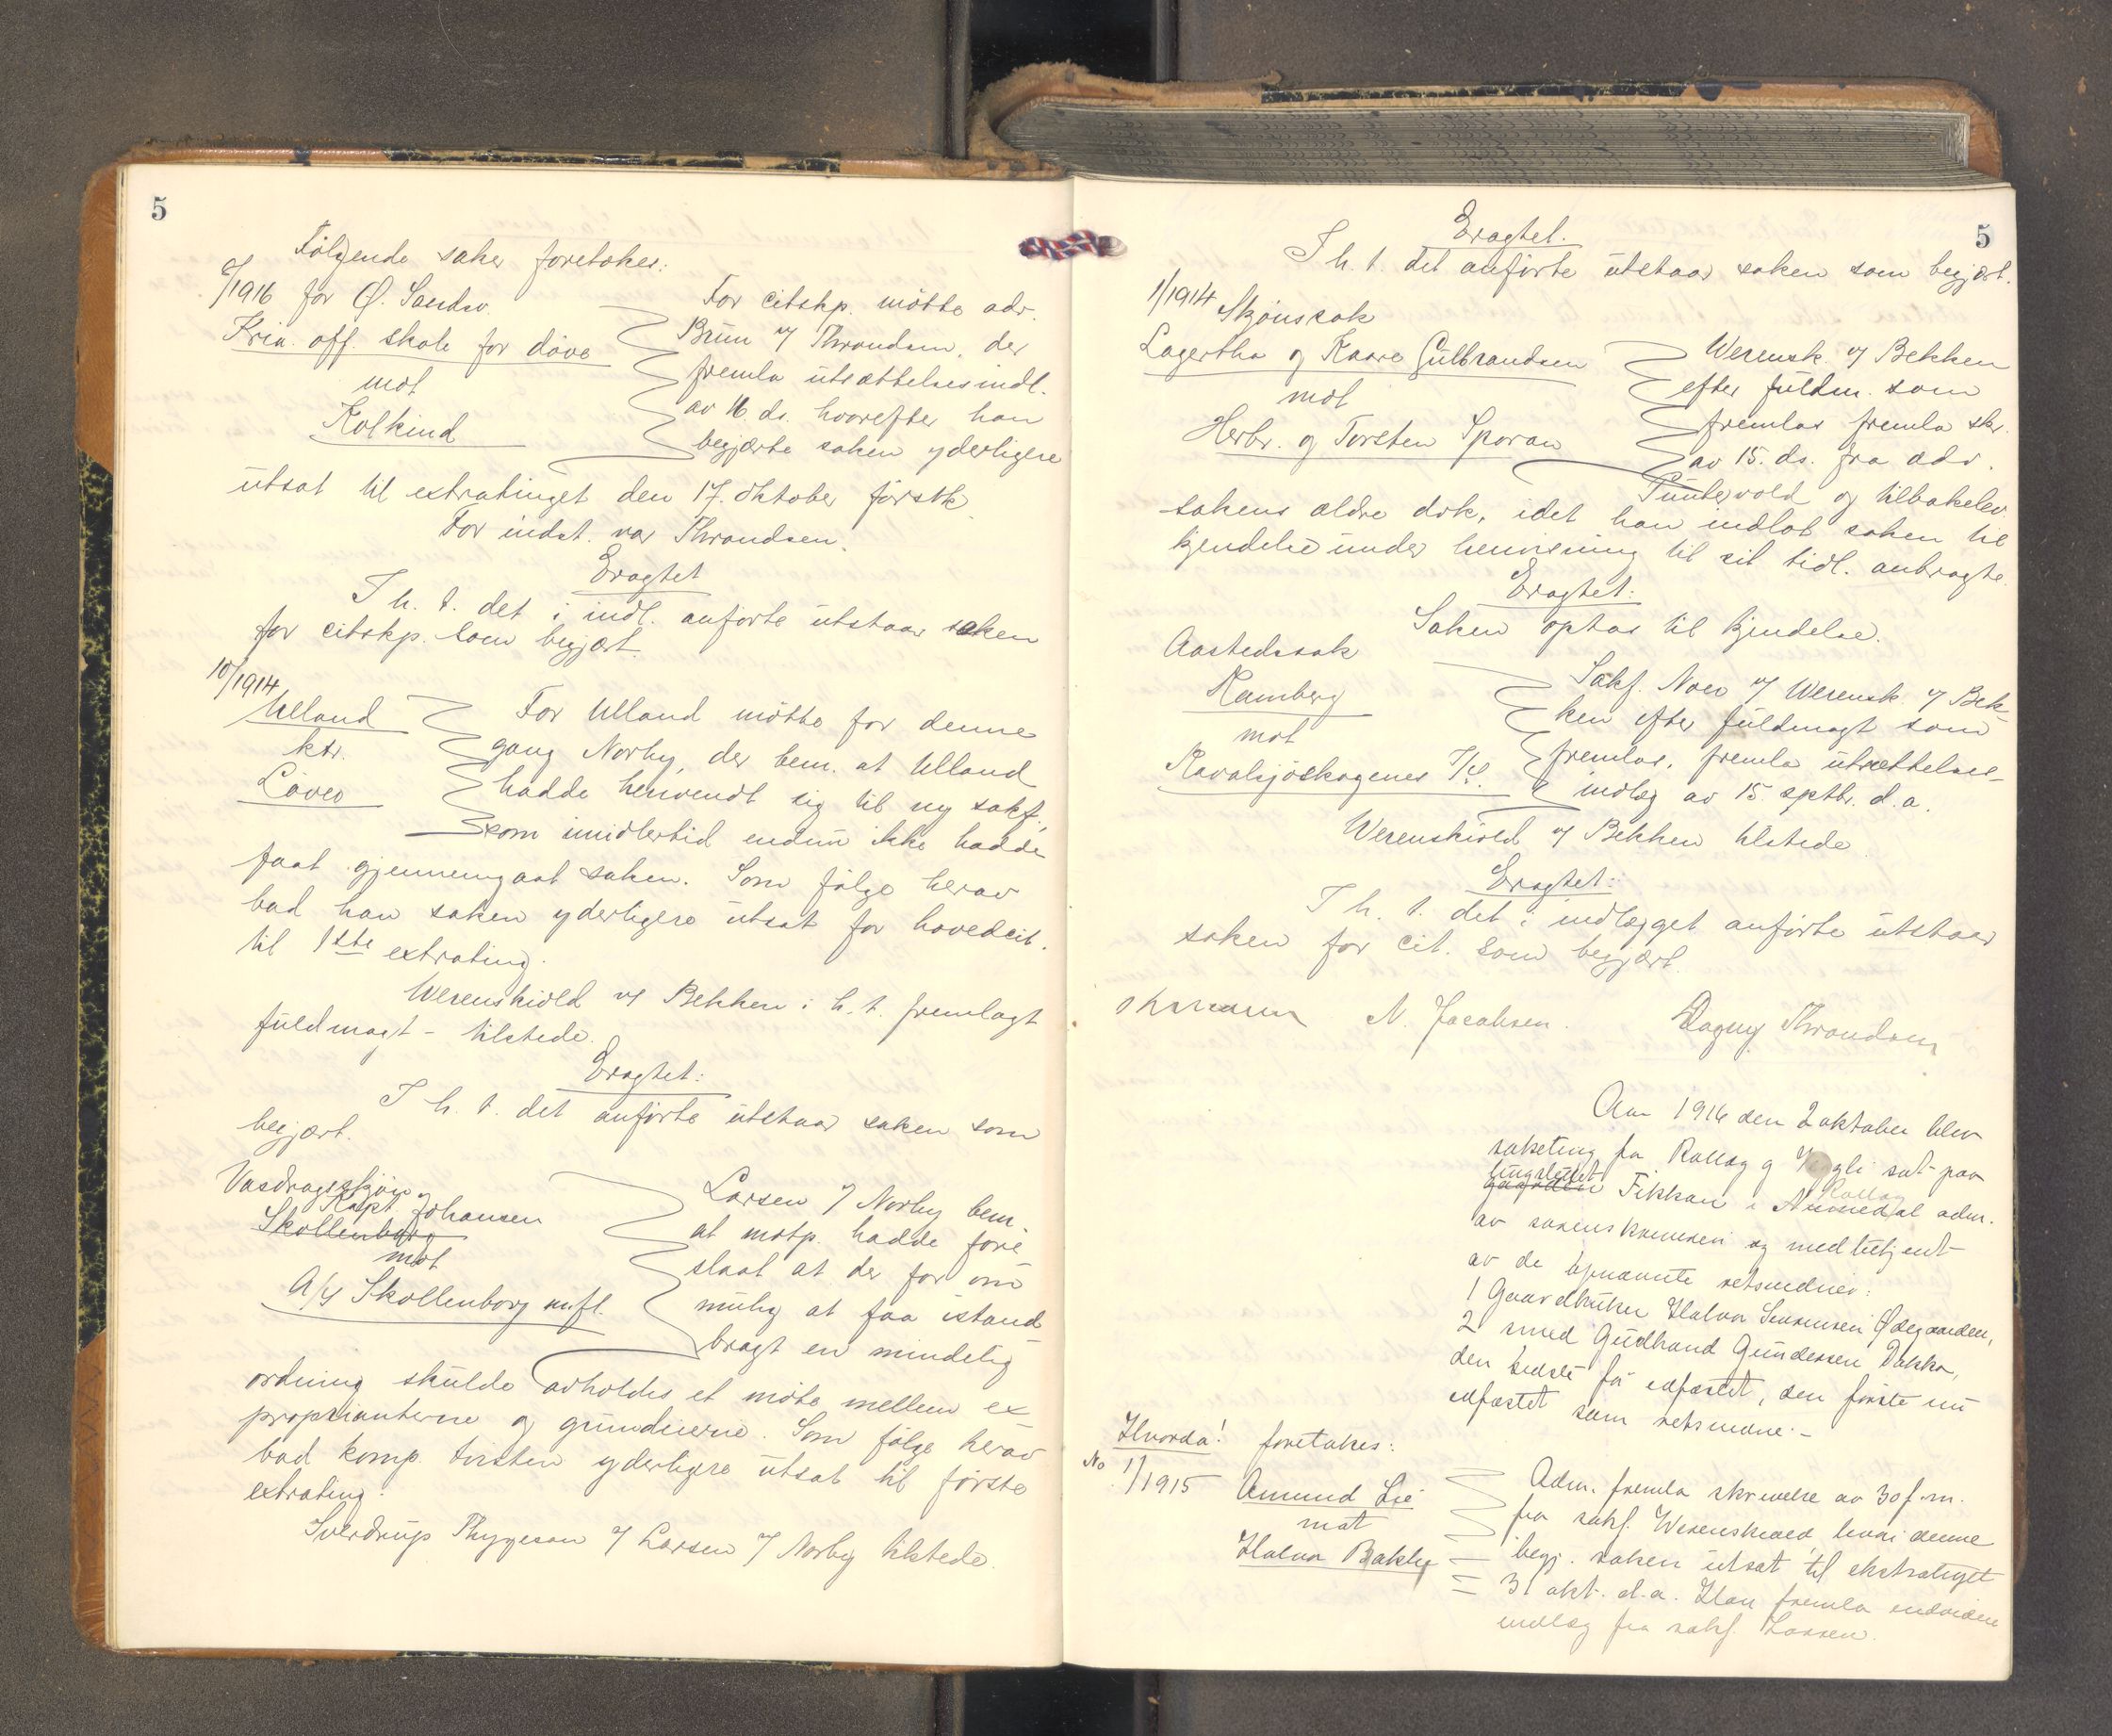 5
Følgende saker foretokes:
/1916 for Ø. Sandsv.
Kria. off. skole for døve
mot
Kolkind
For citskp. møtte adv.
Brun v/ Throndsen, der
fremla utsættelsesindl.
av 16 ds. hvorefter han
begjærte saken yderligere
utsat til extratinget den 17. oktober førstk.
For indst. var Throndsen.
Eragtet
I h. t. det i indl. anførte utstaar saken
for citskp. som begjært.
10/1914
Ulland
ktr.
Løver
For Ulland møtte for denne
gang Norby, der bem. at Ulland
hadde henvendt sig til ny sakf.,
som imidlertid endnu ikke hadde
faat gjennemgaat saken. Som følge herav
bad han saken yderligere utsat for hovedcit.
til 1ste extrating.
Werenskiold v/ Bekken i h. t. fremlagt
fuldmagt - tilstede.
Eragtet:
I h. t. det anførte utstaar saken som
begjært.
Vasdragsskjøn
Kapt. Johansen
Skollenborg
mot
A/S Skollenborg m.fl.
Larsen v/ Norby bem.
at motp. hadde fore
slaat at der for om
mulig at faa istand
bragt en mindelig
ordning skulde avholdes et møte mellem ex
proprianterne og grundeierne. Som følge herav
bad komp. tvisten yderligere utsat til første
extrating.
Sverdrup Thygeson v/ Larsen v/ Norby tilstede.
5
Eragtet.
I h. t. det anførte utstaar saken som begjært.
1/1914 Skjønssak
Lagertha og Kaare Gulbrandsen
mot
Herbr. og Torsten Sporan
Werensk. v/ Bekken
efter fuldm. som
fremlas fremla skr.
av 15. ds. fra adv.
Tuntervold og tilbakelev.
sakens ældre dok, idet han indlot saken til
kjendelse under henvisning til sit tidl. anbragte.
Eragtet:
Saken optas til kjendelse.
Aastedssak
Ramberg
mot
Ravalsjøskogenes I/S.
Sakf. Noer v/ Werensk. v/ Bek
ken efter fuldmagt som
fremlas, fremla utsættelses-
indlæg av 15 sptbr. d.a.
Werenskiold v/ Bekken tilstede
Eragtet:
I h. t. det i indlægget anførte utstaar
saken for cit. som begjært.
N. Jacobsen. Dagny Throndsen
Aar 1916 den 2 oktober blev
saketing for Rollag og Veggli sat paa
tingstedet
gaarden Fikkan i Numedal adm.
Rollag
av sorenskriveren og medbetjent
av de opnævnte retsvidner:
1 Gaardbruker Halvor Ødegaarden,
2 smed Gudbrand Gundersen Bakka,
den sidste før edfæstet, den første nu
edfæstet som retsvidne.-
Hvorda! foretakes:
No 1/1915 Amund Lie
mot
Halvor Bakly
Adm. fremla skrivelse av 30 f.m.
fra sakf. Werenskiold hvori denne
begj. saken utsat til ekstratinget
31 okt. d.a. Han fremla endvidere
indlæg fra sakf. Larsen.